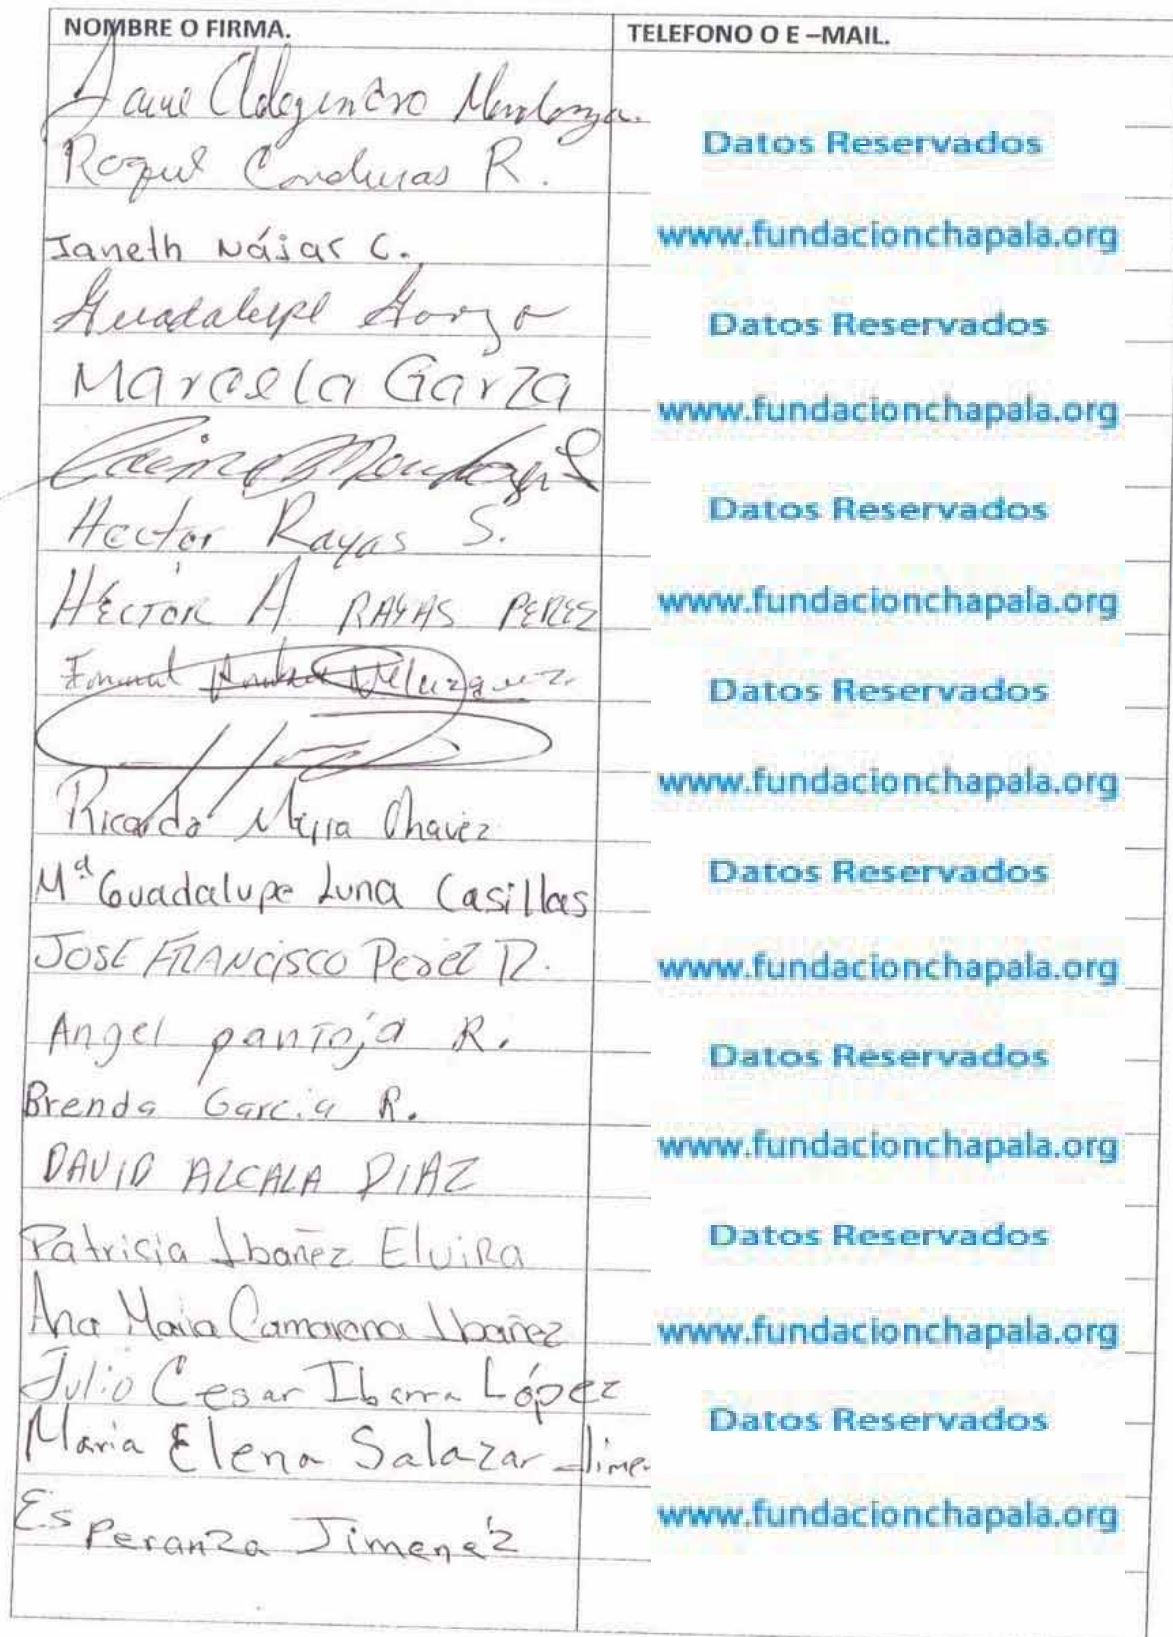 NOMBRE O FIRMA. TELEFONO O E –MAIL.
Mendoza.
Datos Reservados
R.
www.fundacionchapala.org
Janeth Nájar C.
Guadalupe Garza
Datos Reservados
Marcela Garza
www.fundacionchapala.org
Hector Rayas S.
Datos Reservados
HÉCTOR A RAYAS PEREZ
www.fundacionchapala.org
Velazquez
Datos Reservados
www.fundacionchapala.org
Ricardo Mejia Chavez
Mª Guadalupe Luna Casillas
Datos Reservados
JOSE FRANCISCO Perez R.
www.fundacionchapala.org
Angel pantoja R.
Datos Reservados
Brenda Garcia R.
www.fundacionchapala.org
DAVID ALCALA DIAZ
Patrisia Ibañez Elvira
Datos Reservados
Ana Maria Camarena Ibañez
www.fundacionchapala.org
Julio Cesar Ibarra López
Datos Reservados
Maria Elena Salazar Jime
www.fundacionchapala.org
Esperanza Jimenéz